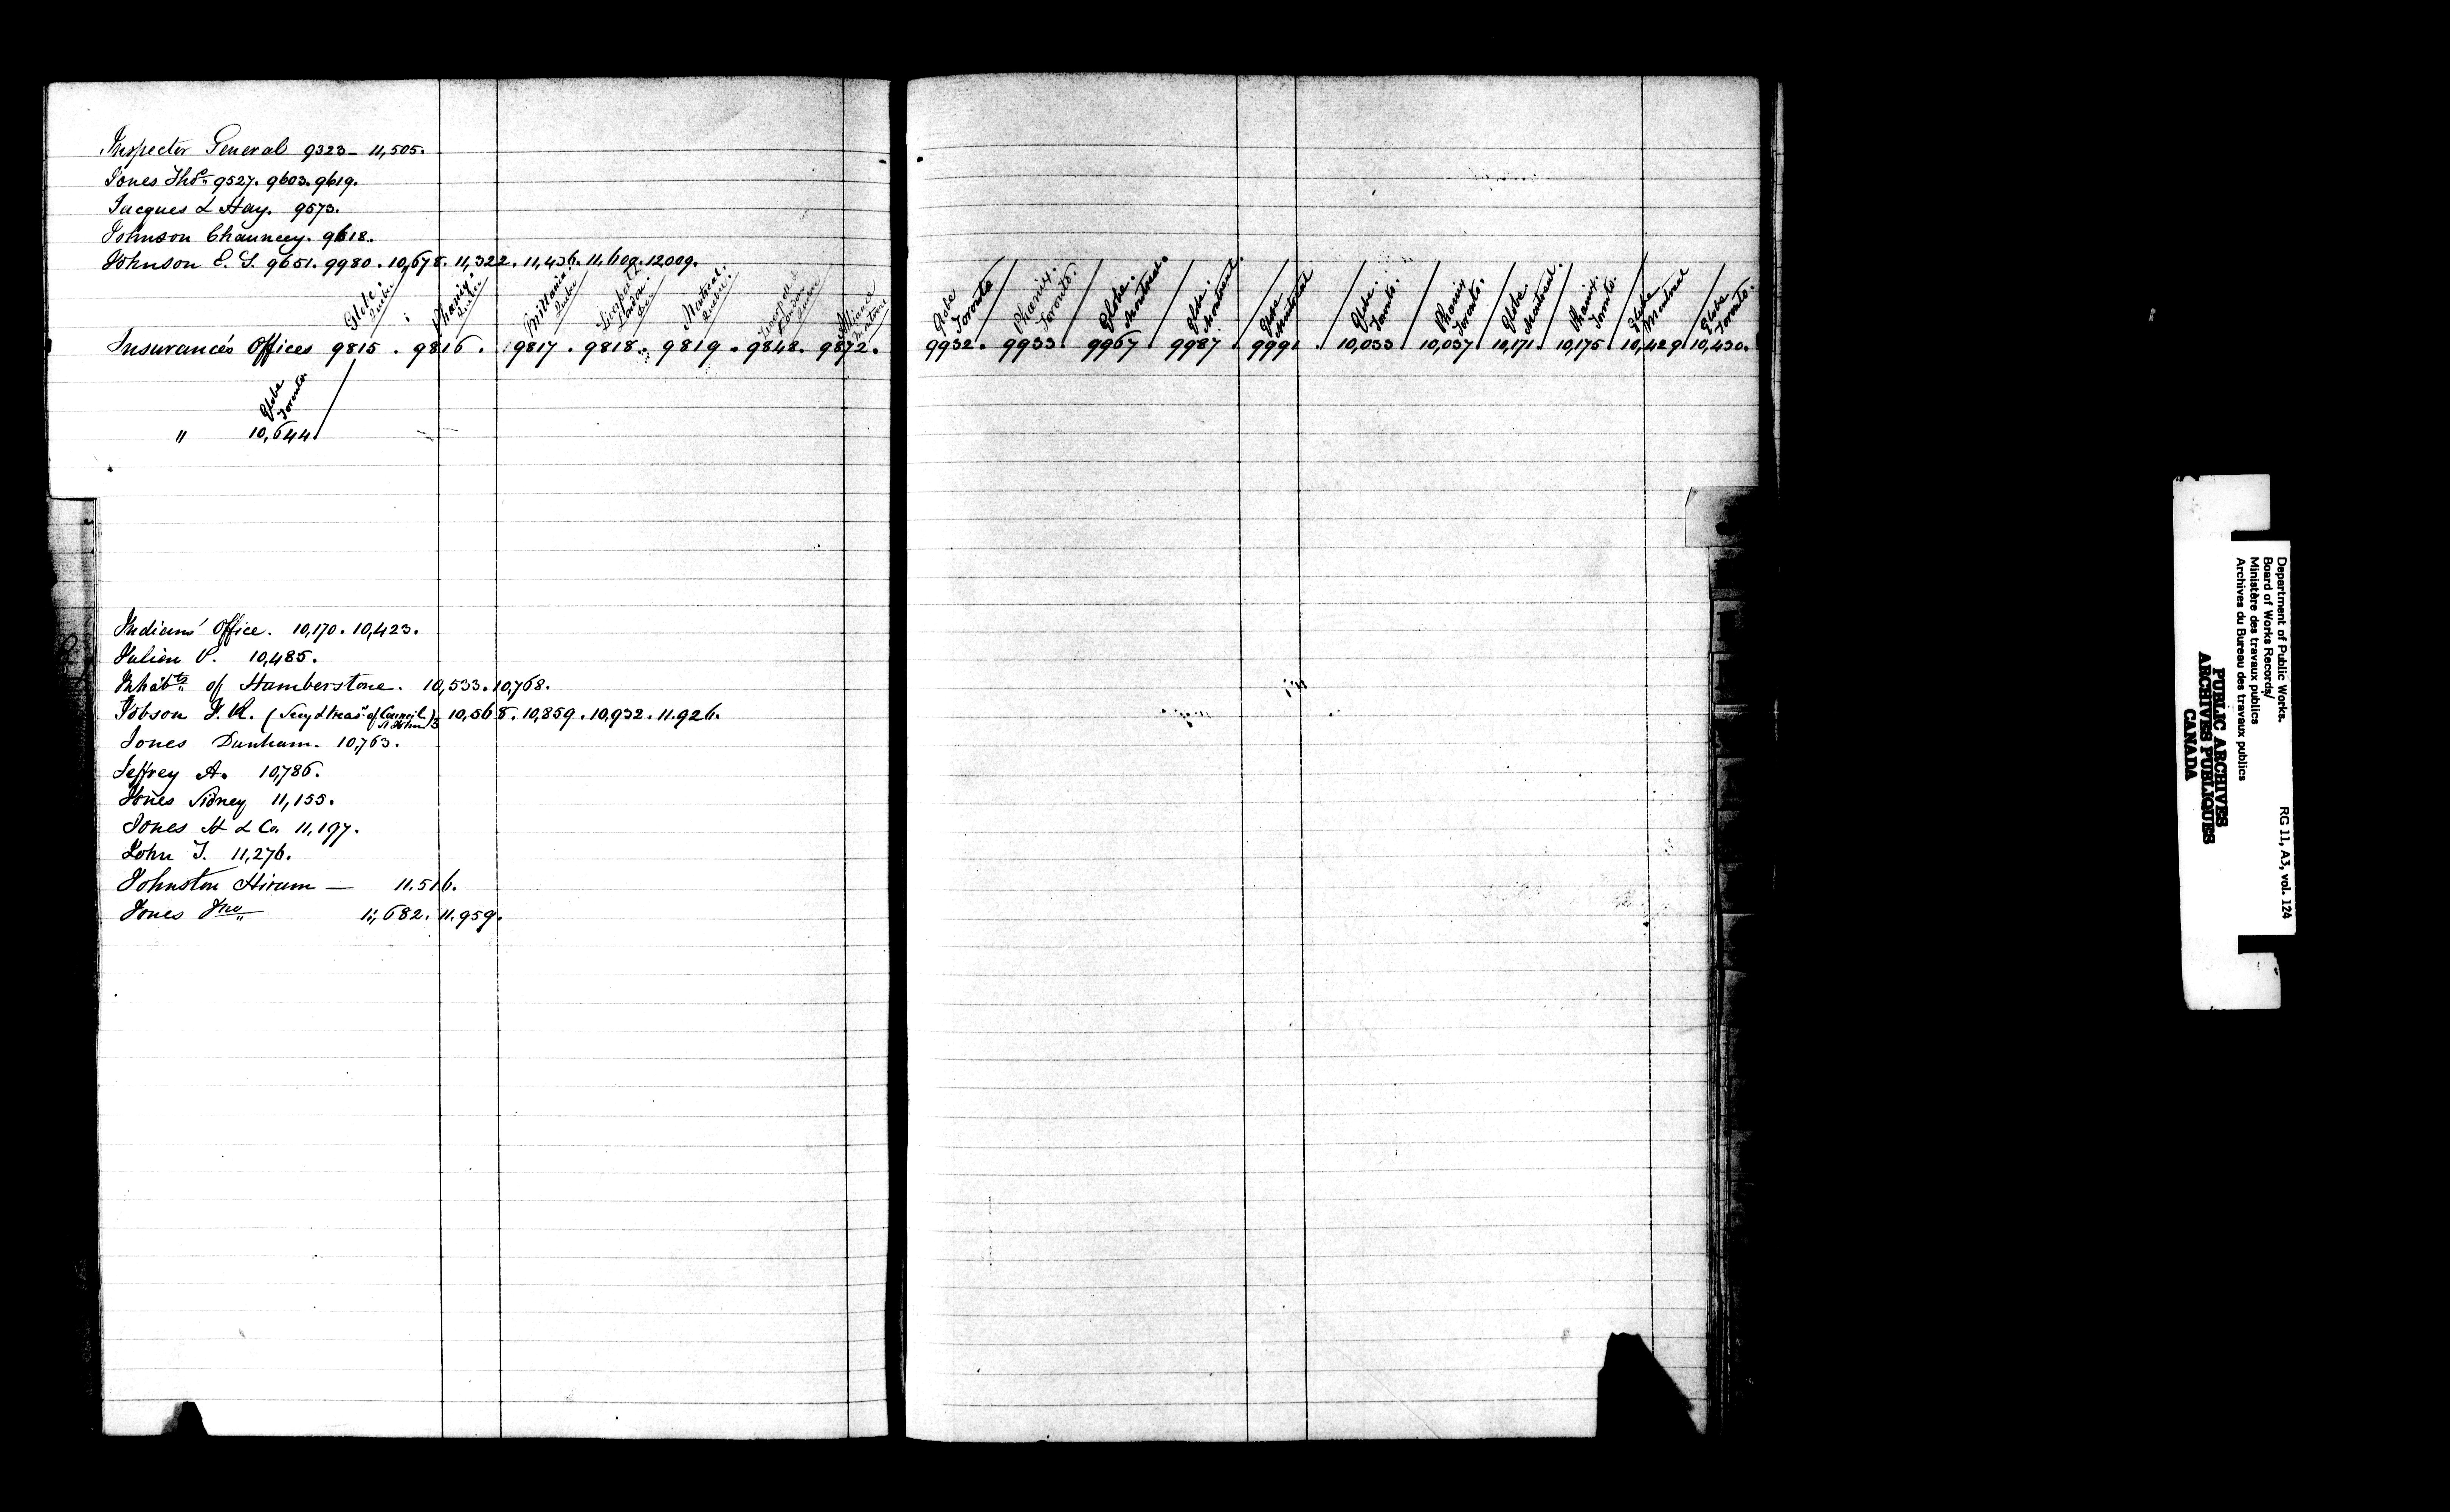 Inspector General 9323 – 11,505.
Jones Thos. 9527. 9603. 9619.
Jacques & Hay. 9573.
Johnson Chauncey. 9618.
Johnson E. S. 9651. 9980. 10,678. 11,322. 11,436. 11,609. 12009.
Globe. Quebec Phœnix. Quebec Brittania. Quebec Liverpool & London. Montreal. Quebec. Liverpool London Quebec Aliance
Insurance's Offices 9815. 9816. 9817. 9818. 9819. 9848. 9872.
Globe Toronto.
" 10,644
Indians' Office. 10,170. 10,423.
Julien P. 10,485.
Inhabts. of Humberstone. 10,533. 10,768.
Jobson J. R. (Secy & treasr. of Council) 10,568. 10,859. 10,932. 11.926.
Jones Dunham. 10,763.
Jeffrey A. 10,786.
Jones Sidney 11,155.
Jones H & Co. 11,197.
John J. 11,276.
Johnston Hiram — 11.516.
Jones Jno. 11,682. 11.959.
Globe Toronto Phœnix. Toronto. Globe. Montreal. Globe. Montreal. Globe Montreal Globe. Toronto. Phœnix Toronto. Globe. Montreal. Phœnix. Toronto. Globe Montreal Globe Toronto.
9932. 9933 9967 9987 9991 10,033 10,037 10,171. 10,175 10,429 10,430.
Department of Public Works.
Board of Works Records/
Ministère des travaux publics
Archives du Bureau des travaux publics
RG 11, A3, vol. 124
PUBLIC ARCHIVES
ARCHIVES PUBLIQUES
CANADA